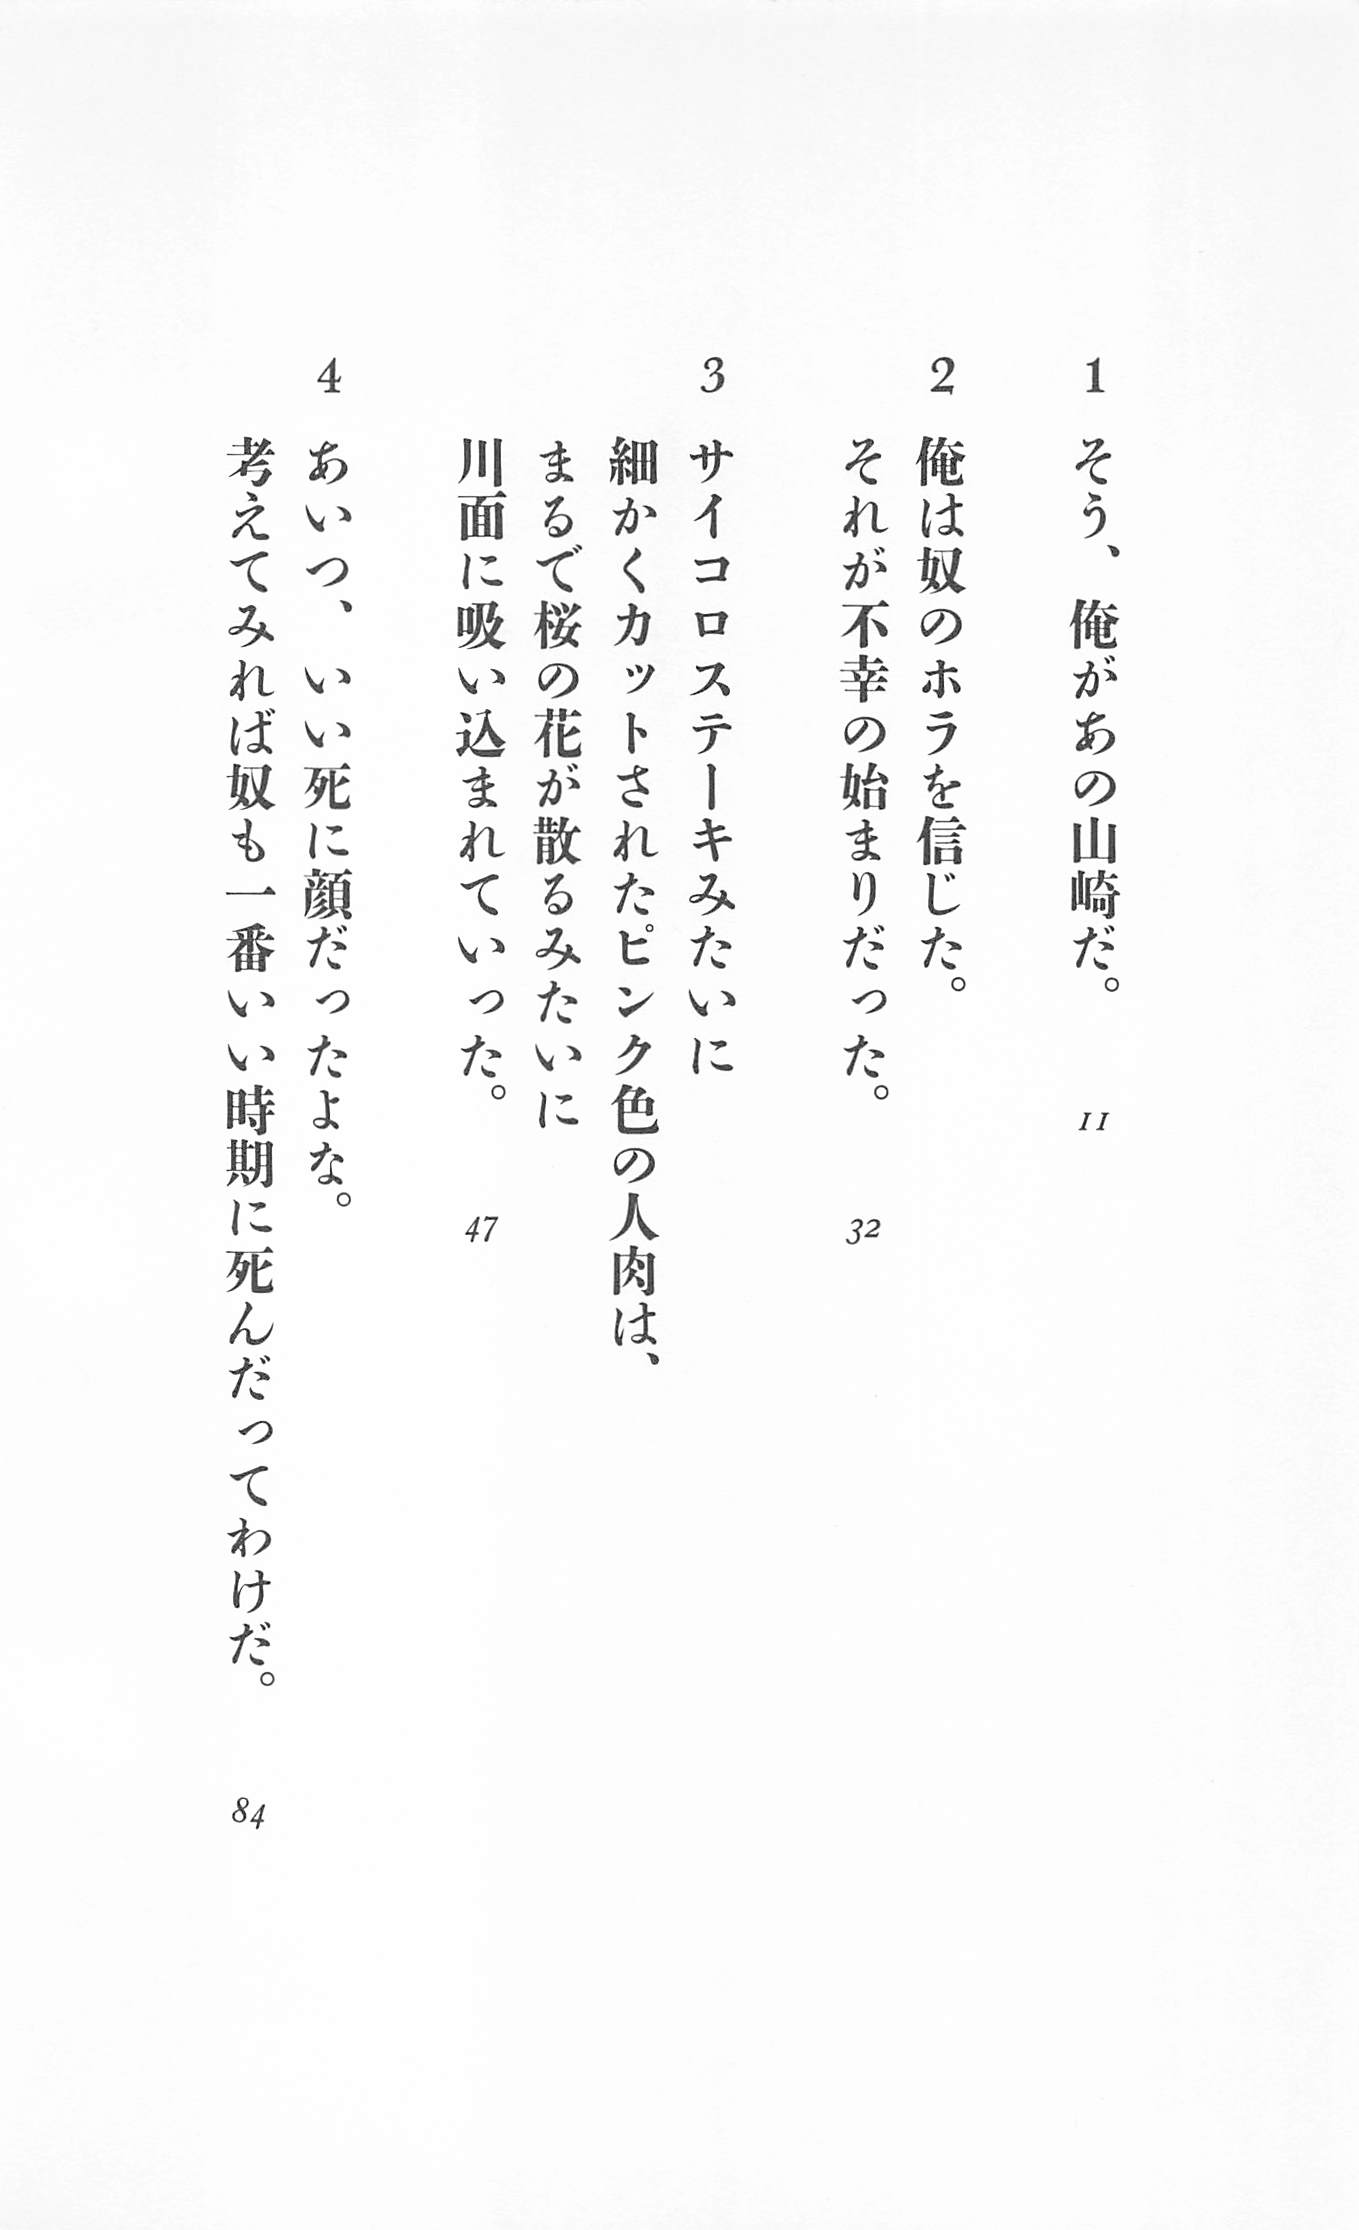 1 そう、俺があの山崎だ。 11
2 俺は奴のホラを信じた。
それが不幸の始まりだった。 32
3 サイコロステーキみたいに
細かくカットされたピンク色の人肉は、
まるで桜の花が散るみたいに
川面に吸い込まれていった。 47
4 あいつ、いい死に顔だったよな。
考えてみれば奴も一番いい時期に死んだってわけだ。 84